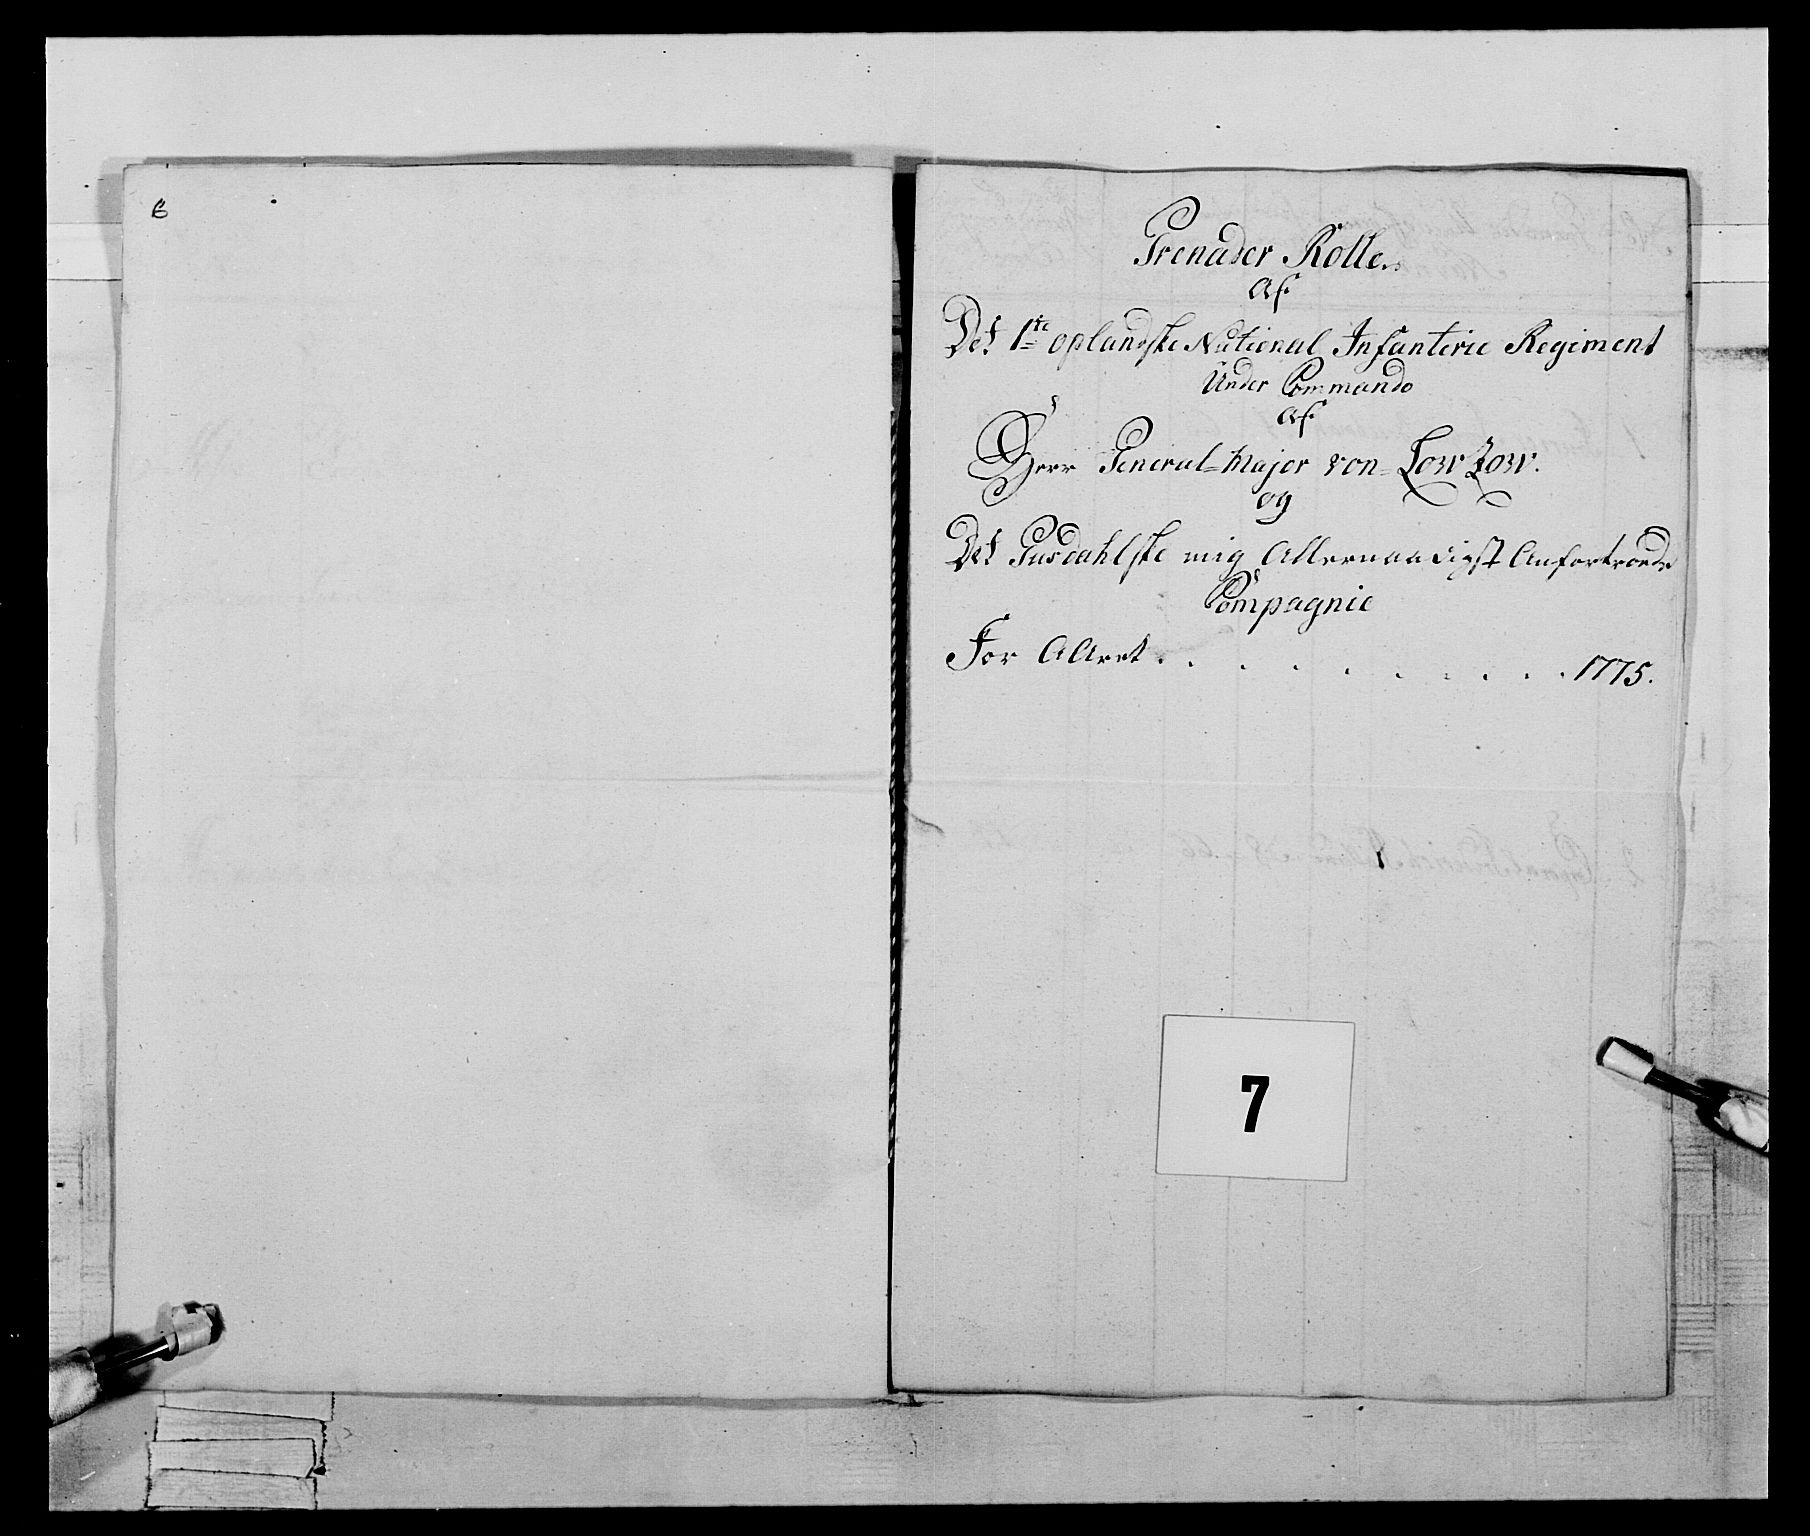 6
Grenader Rolle
Af
Det 1ste oplandske National Infanterie Regiment
Under Commando
Af
Herr General-Major von Lowzow.
og
Det Gusdahlske mig Allernaadigst Anfortroede
Compagnie
For AAret . . . . . . . . . . 1775.
7